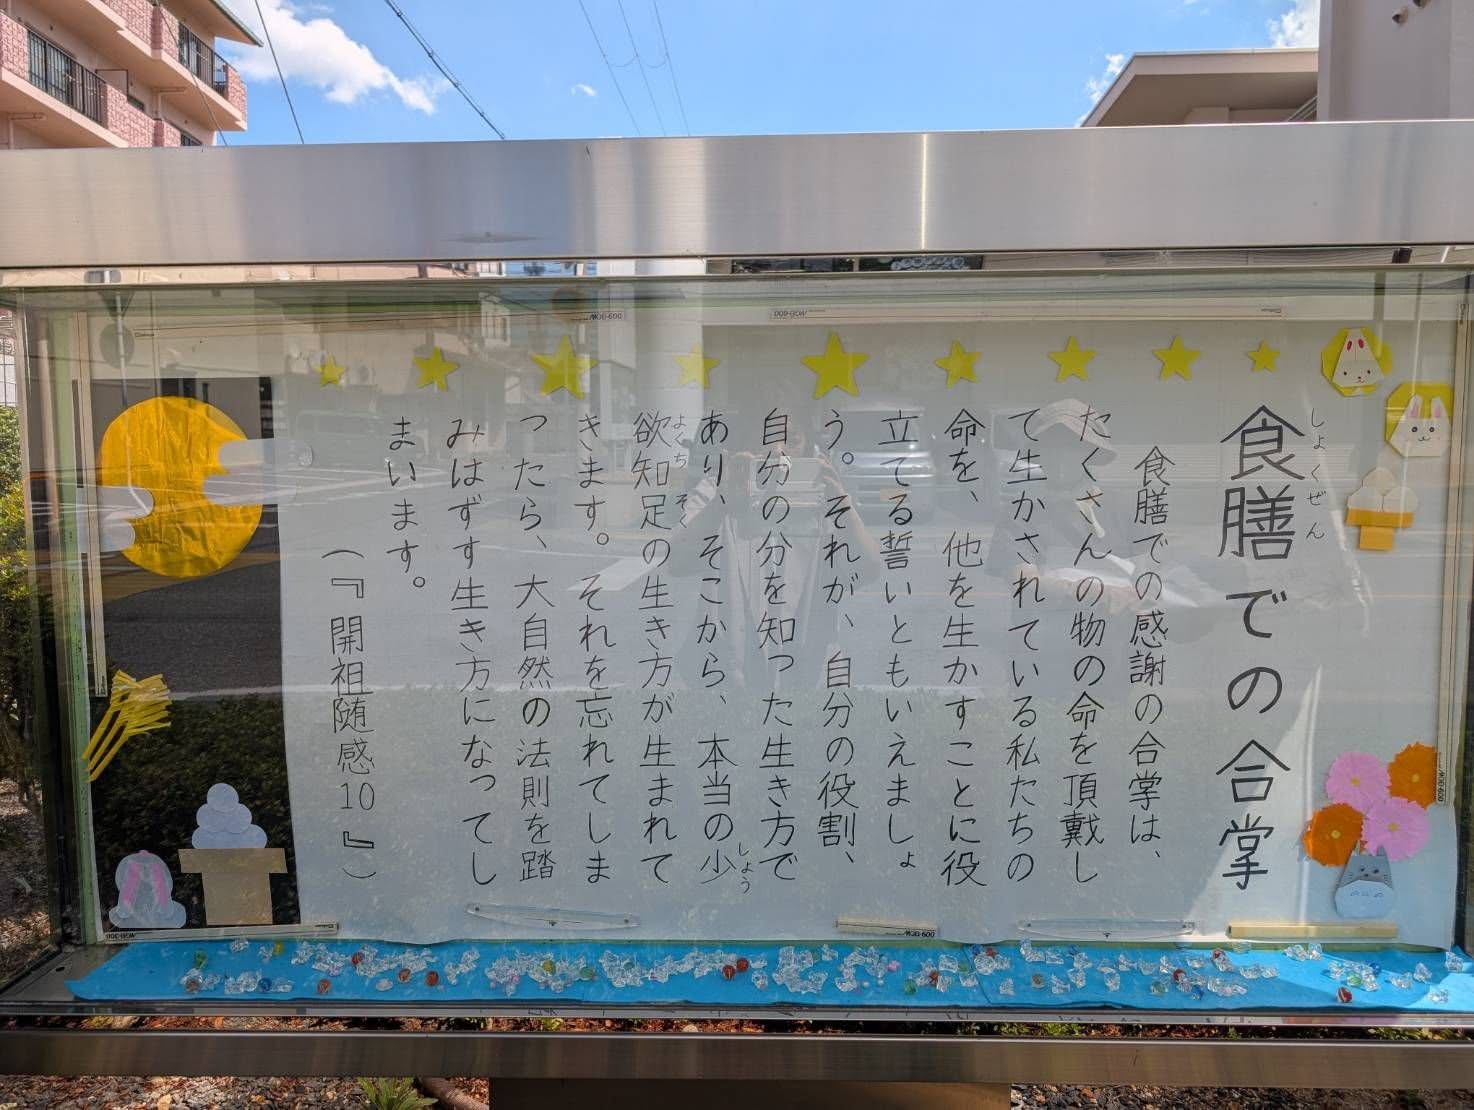 食膳での合掌
しょくぜん
食膳での感謝の合掌は、
たくさんの物の命を頂戴し
て生かされている私たちの
命を、他を生かすことに役
立てる誓いともいえましょ
う。それが、自分の役割、
自分の分を知った生き方で
あり、そこから、本当の少
しょう
欲知足の生き方が生まれて
よくち そく
きます。それを忘れてしま
ったら、大自然の法則を踏
みはずす生き方になってし
まいます。
(『開祖随感10』)